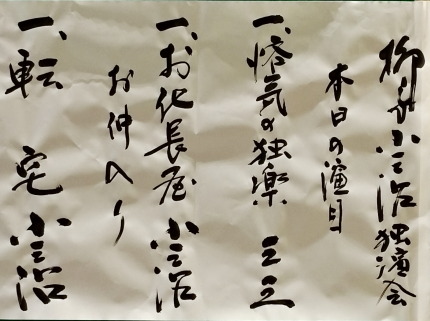 柳家小三治独演会
本日の演目
一、悋気の独楽 三三
一、お化長屋 小三治
お仲入り
一、転宅 小三治